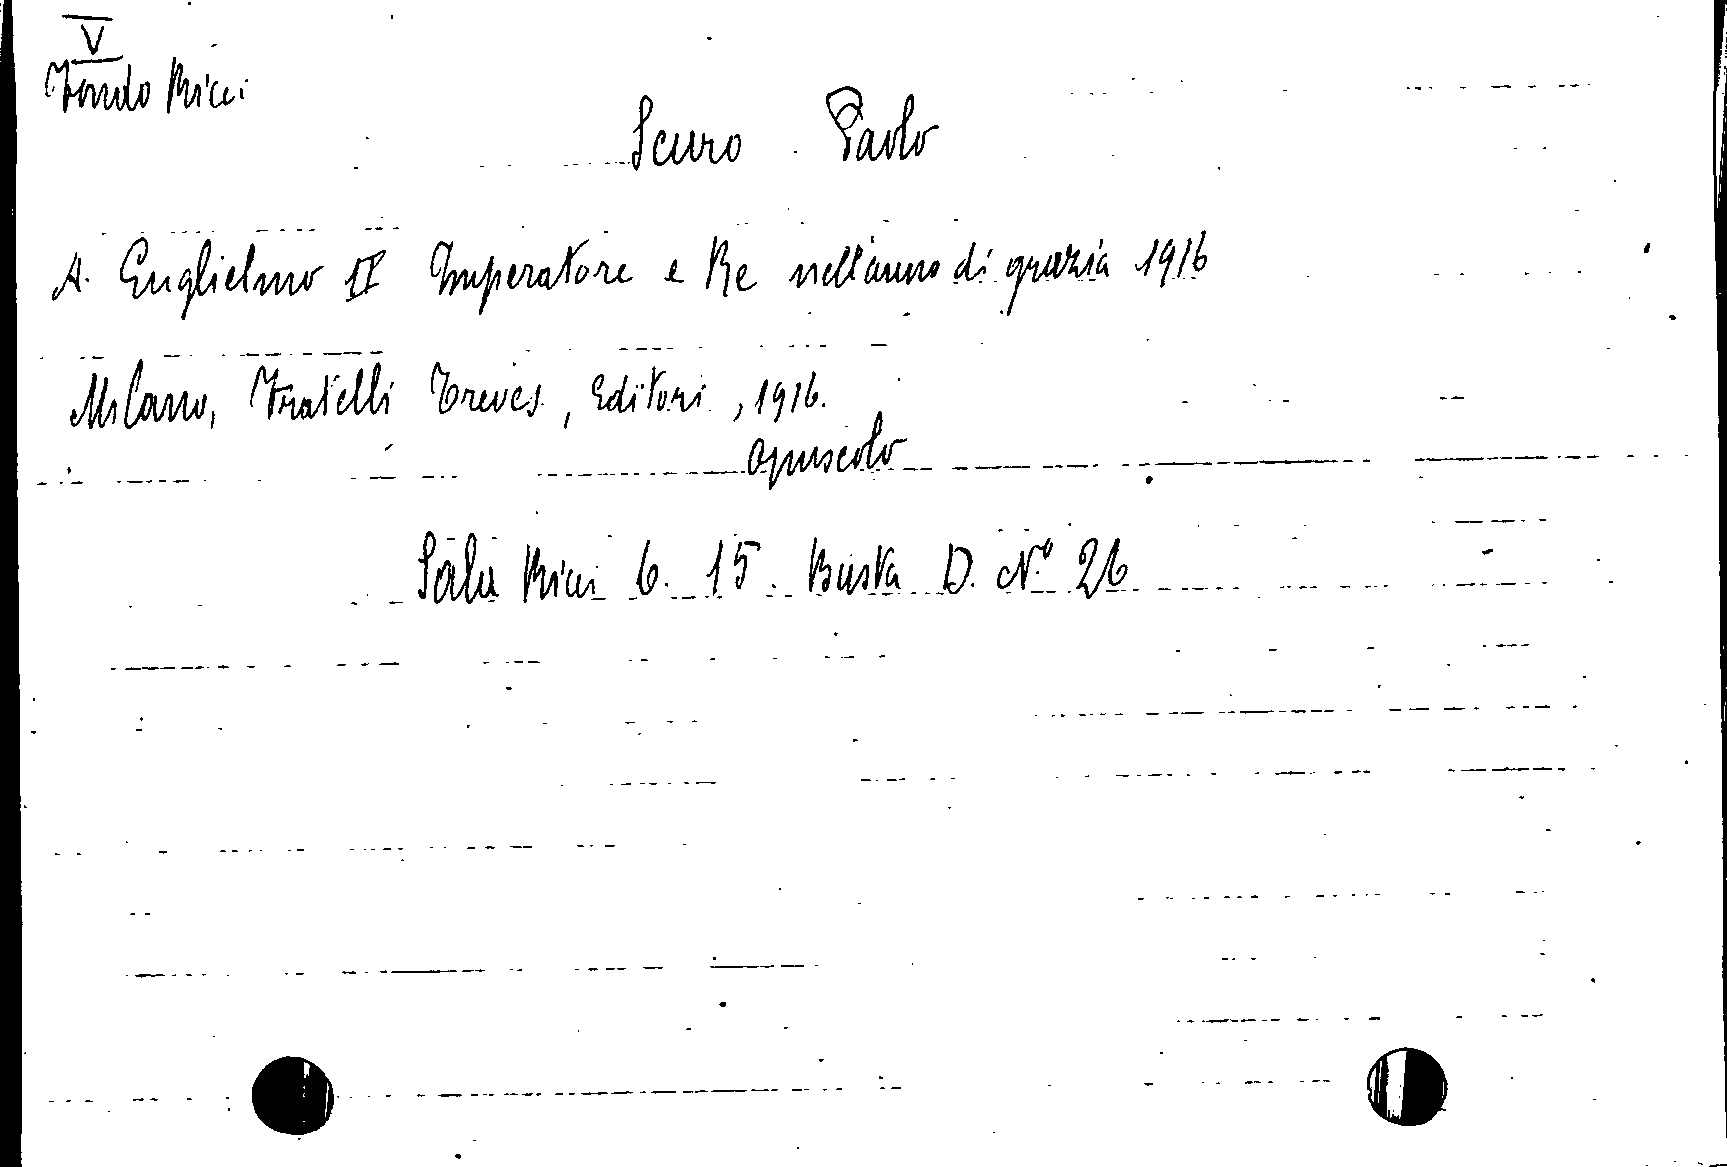 V
Fondo Ricci
Scuro Paolo
A. Guglielmo II Imperatore e Re nell'anno di grazia 1916
Milano, Fratelli Treves, Editori, 1916.
opuscolo
Sala Ricci 6. 15. Busta D. N.° 26